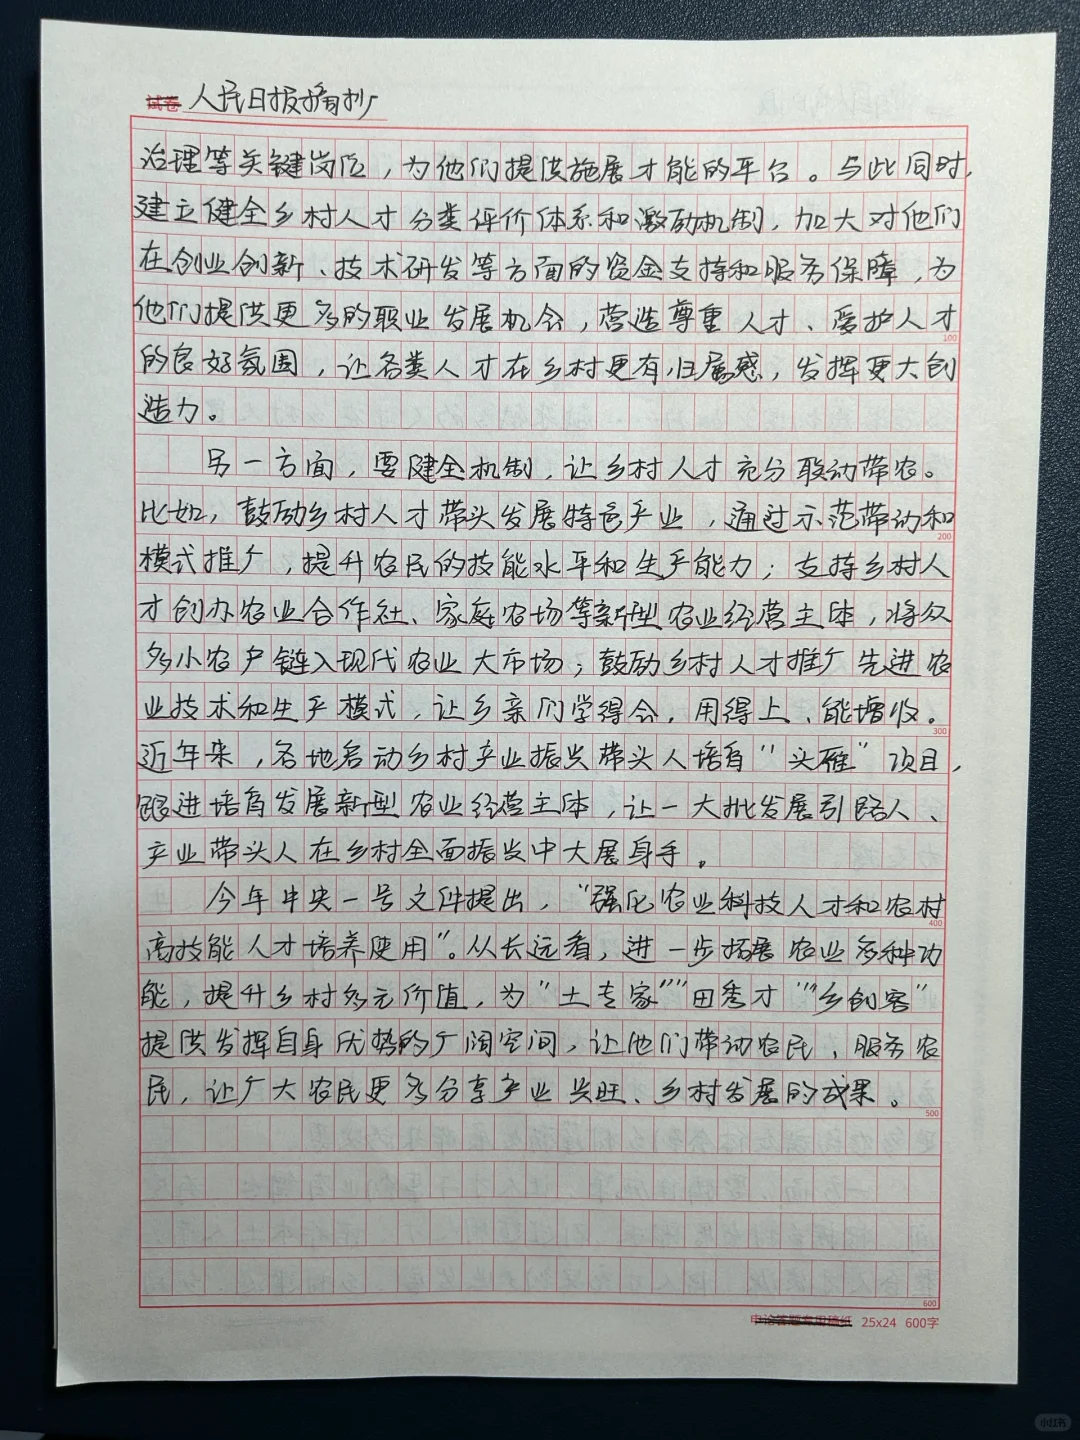 试卷 人民日报摘抄
治理等关键岗位，为他们提供施展才能的平台。与此同时，
建立健全乡村人才分类评价体系和激励机制，加大对他们
在创业创新、技术研发等方面的资金支持和服务保障，为
他们提供更多的职业发展机会，营造尊重人才、爱护人才
100
的良好氛围，让各类人才在乡村更有归属感，发挥更大创
造力。
另一方面，要健全机制，让乡村人才充分联动带农。
比如，鼓励乡村人才带头发展特色产业，通过示范带动和
200
模式推广，提升农民的技能水平和生产能力；支持乡村人
才创办农业合作社、家庭农场等新型农业经营主体，将众
多小农户链入现代农业大市场；鼓励乡村人才推广先进农
业技术和生产模式，让乡亲们学得会，用得上、能增收。
300
近年来，各地启动乡村产业振兴带头人培育“头雁”项目，
跟进培育发展新型农业经营主体，让一大批发展引路人、
产业带头人在乡村全面振兴中大展身手。
今年中央一号文件提出，“强化农业科技人才和农村
400
高技能人才培养使用”。从长远看，进一步拓展农业多种功
能，提升乡村多元价值，为“土专家”“田秀才”“乡创客”
提供发挥自身优势的广阔空间，让他们带动农民、服务农
民，让广大农民更多分享产业兴旺、乡村发展的成果。
500
600
申论答题专用稿纸 25x24 600字
小红书